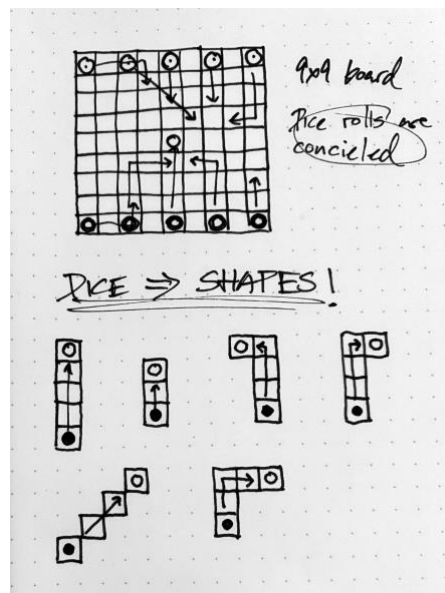 9x9 board
Dice rolls are
concieled
DICE ⇒ SHAPES!